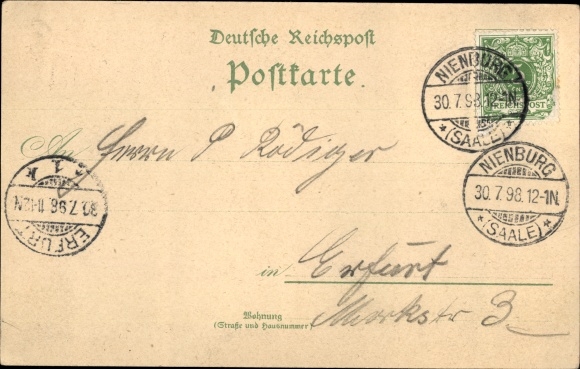 Deutsche Reichspost
Postkarte
NIENBURG
30.7.98.12-1N.
* (SAALE) *
REICHSPOST
An Herrn P Rödiger
NIENBURG
30.7.98.12-1N.
* (SAALE) *
ERFURT
30.7.98.11-12N
1 k
in Erfurt
Wohnung
(Straße und Hausnummer)
Marktstr 3